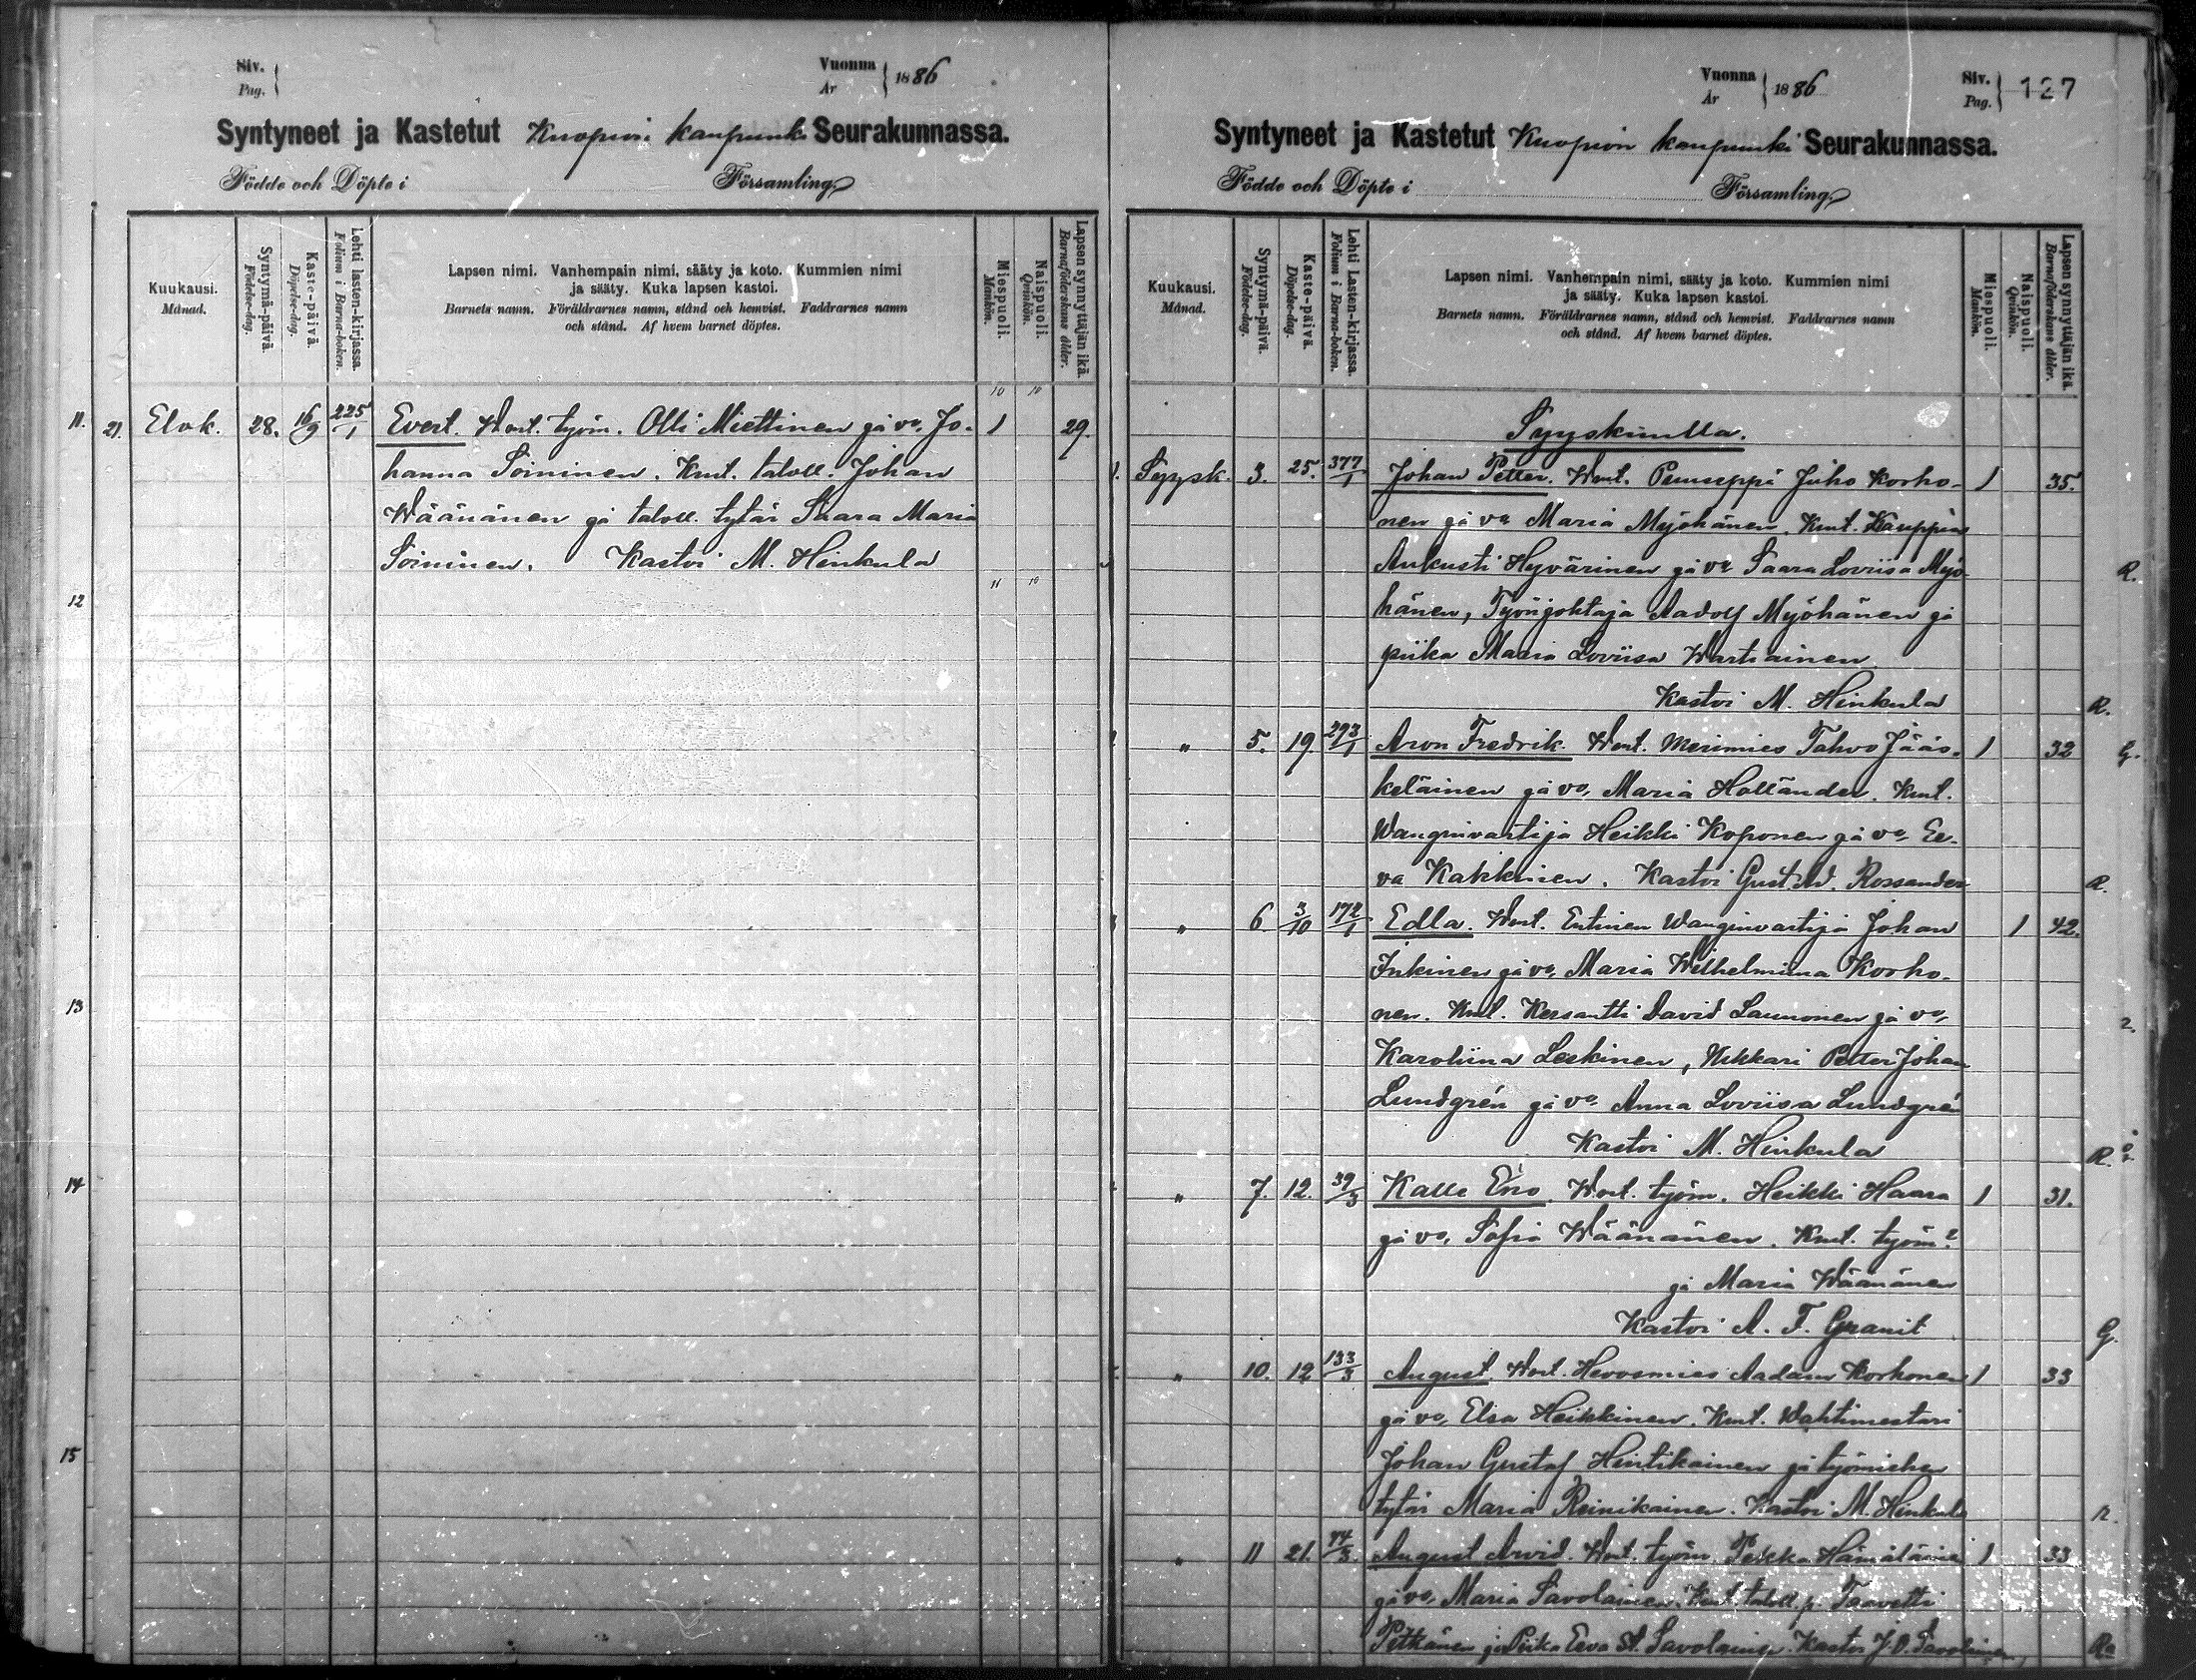 Siv.
Pag.
Vuonna
År
1886
Syntyneet ja Kastetut Kuopion kaupunki Seurakunnassa.
Födde och Döpte i Församling
Kuukausi.
Månad.
Syntymä-päivä.
Födelse-dag.
Kaste-päivä.
Döpelse-dag.
Lehti lasten-kirjassa.
Folium i Barna-boken.
Lapsen nimi. Vanhempain nimi, sääty ja koto. Kummien nimi
ja sääty. Kuka lapsen kastoi.
Barnets namn. Föräldrarnes namn, stånd och hemvist. Faddrarnes namn
och stånd. Af hvem barnet döptes.
Miespuoli.
Mankön.
Naispuoli.
Qvinkön.
Lapsen synnyttäjän ikä.
Barnaföderskans ålder.
10 10
11. 21. Elok. 28. 16/9 225/1 Evert. Wnt. työm. Olli Miettinen ja vo, Jo- 1 29.
hanna Soininen. Kmt. taloll. Johan
Wäänänen ja taloll. tytär Saara Maria
Soininen. Kastoi M. Hinkula
11 10
12
13
14
15
Vuonna
År
1886
Siv.
Pag.
127
Syntyneet ja Kastetut Kuopion kaupunki Seurakunnassa.
Födde och Döpte i Församling
Kuukausi.
Månad.
Syntymä-päivä.
Födelse-dag.
Kaste-päivä.
Döpelse-dag.
Lehti Lasten-kirjassa.
Folium i Barna-boken.
Lapsen nimi. Vanhempain nimi, sääty ja koto. Kummien nimi
ja sääty. Kuka lapsen kastoi.
Barnets namn. Föräldrarnes namn, stånd och hemvist. Faddrarnes namn
och stånd. Af hvem barnet döptes.
Miespuoli.
Mankön.
Naispuoli.
Qvinkön.
Lapsen synnyttäjän ikä.
Barnaföderskans ålder.
Syyskuulla.
Syysk. 3. 25. 377/1 Johan Petter. Wnt. Puuseppä Juho Korho- 1 35.
nen ja vo Maria Myöhänen. Kmt. Kauppias
Aukusti Hyvärinen ja vo Saara Loviisa Myö-
hänen, Työnjohtaja Aadolf Myöhänen ja
piika Maria Loviisa Wartiainen
Kastoi M. Hinkula R.
" 5. 19. 293/1 Aron Fredrik. Wnt. Merimies Tahvo Jääs- 1 32 G.
keläinen ja vo, Maria Holländer. Kmt.
Wanginvartija Heikki Koponen ja vo, Ee-
va Kakkinen. Kastoi Gust. Ad. Rossander R.
" 6. 3/10 172/1 Edla. Wnt. Entinen Wanginvartija Johan 1 42.
Inkinen ja vo, Maria Wilhelmiina Korho-
nen. Kmt. Kersantti David Launonen ja vo,
Karoliina Leskinen, Nikkari Petter Johan
Lundgrén ja vo, Anna Loviisa Lundgrén
Kastoi M. Hinkula R.
" 7. 12. 39/3 Kalle Eno. Wnt. työm. Heikki Haara 1 31.
ja vo, Sofia Wäänänen. Kmt. työm.?
ja Maria Wäänänen
Kastoi A. F. Granit G.
" 10. 12 133/3 August. Wnt. Hevosmies Aadam Korhonen 1 33
ja vo, Elsa Heikkinen. Kmt. Wahtimestari
Johan Gustaf Hintikainen ja työmiehen
tytär Maria Reinikainen. Kastoi M. Hinkula R.
" 11 21. 74/3. August Arvid. Wnt. työm. Pekka Hämäläinen 1 33
ja vo, Maria Savolainen. Kmt. taloll. p. Taavetti
Pitkänen ja Piika Eeva St. Savolainen. Kastoi J. O. Savolainen